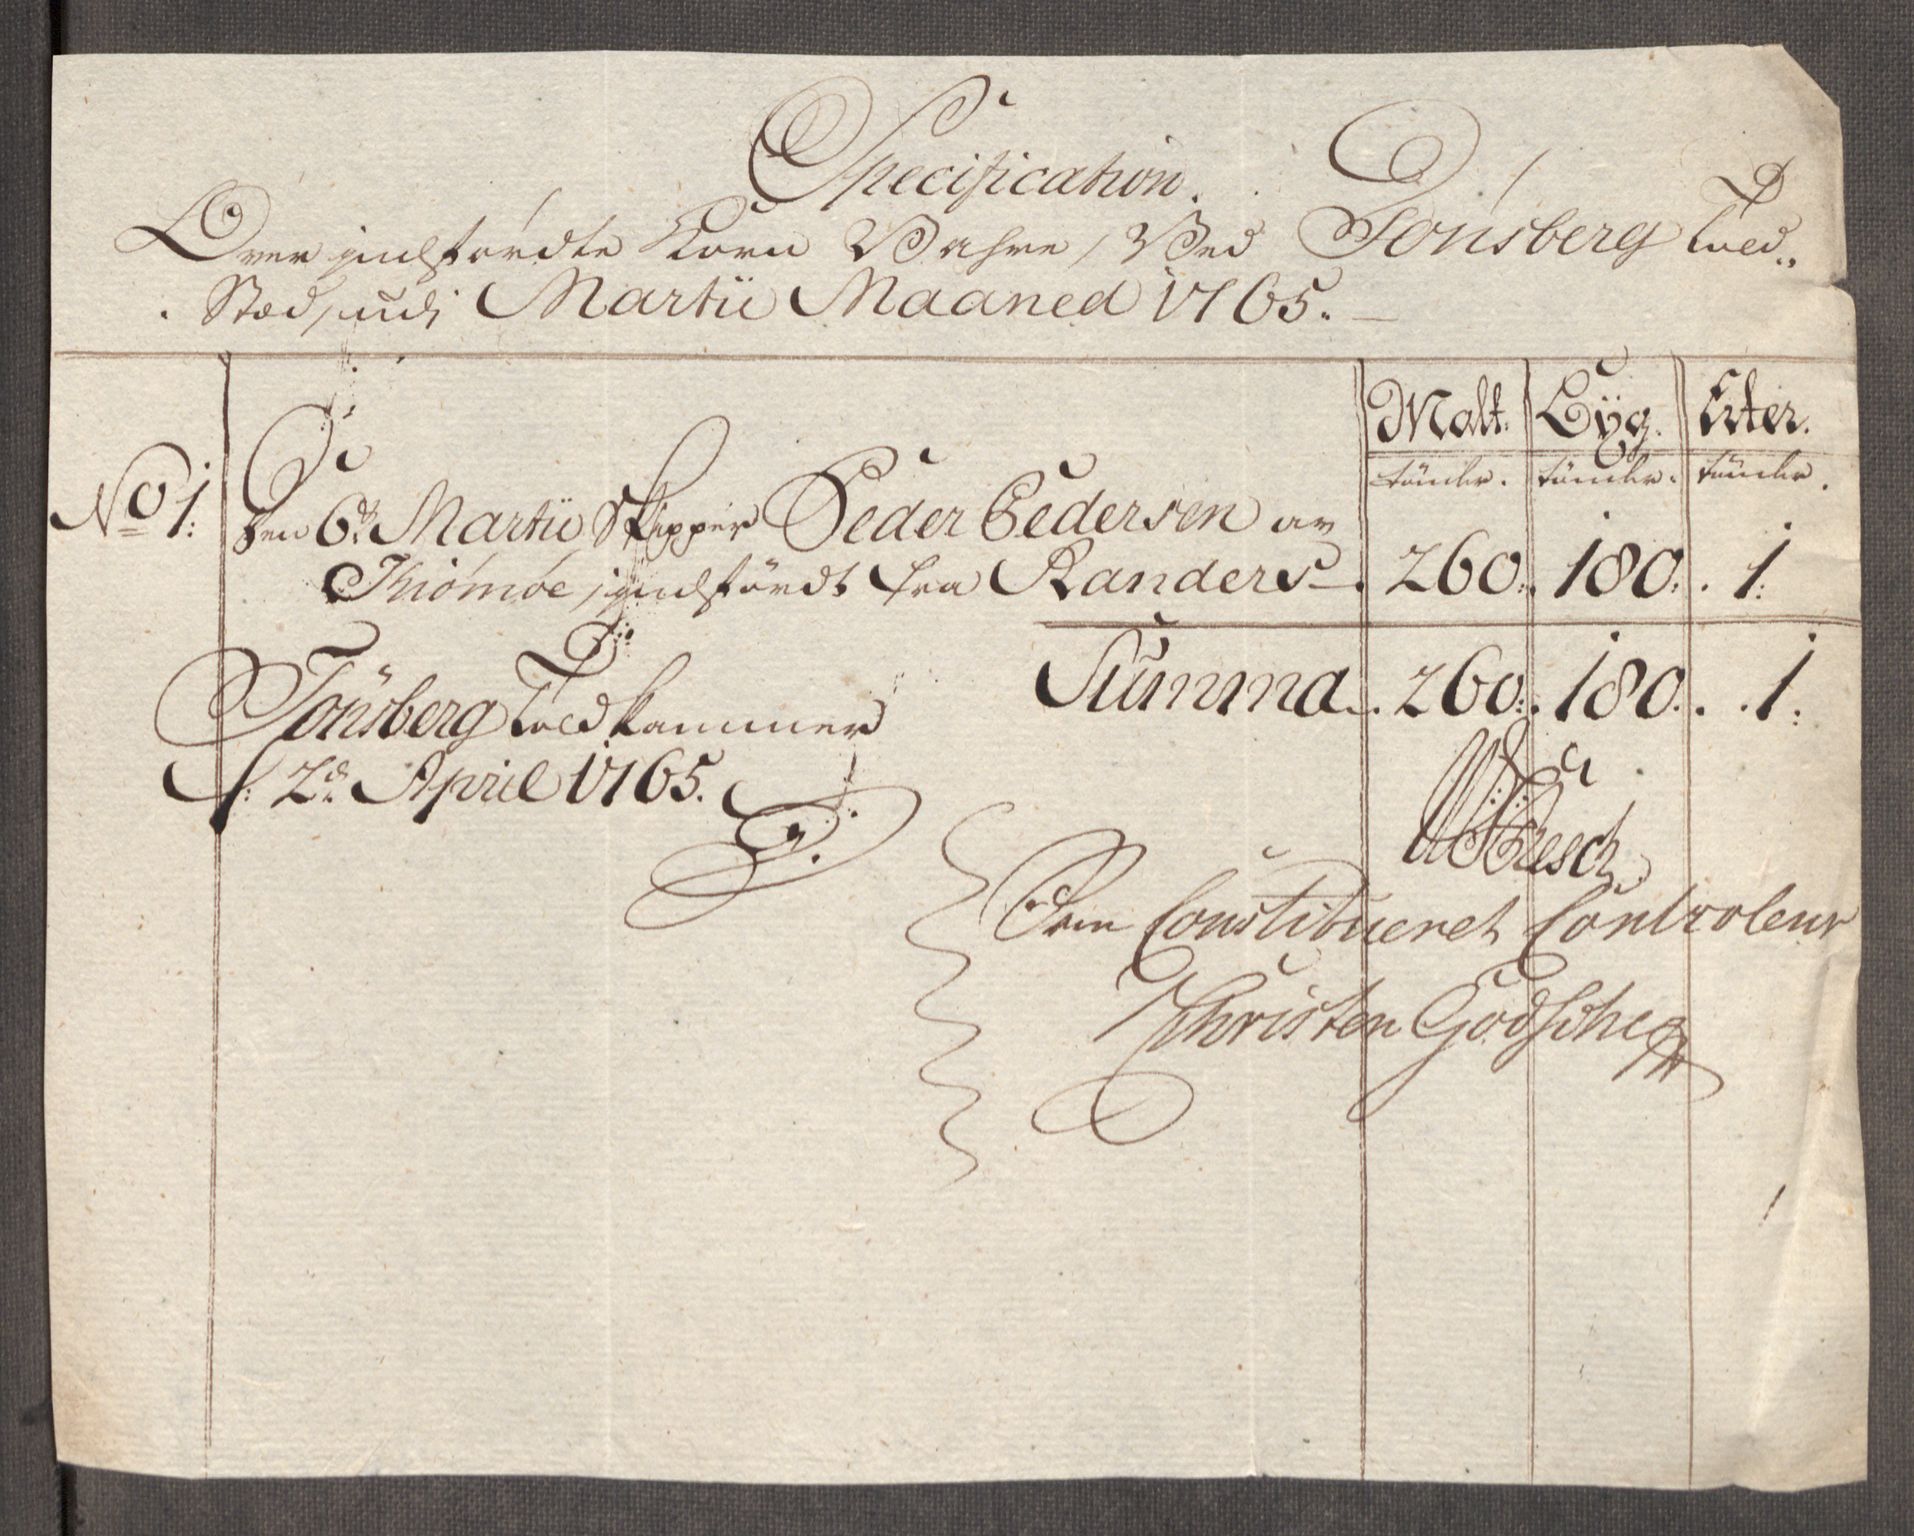 Specification.
Over indførdte Korn Vahre, Ved Tönsberg Told-
Stæd, udi Martii Maaned 1765.
Malt. Byg. Erter.
tönder. tönder. tönder.
No 1. Den 6te Martii Skipper Peder Pedersen av
Thiömöe, indført fra Randers 260. 180. 1.
Summa 260. 180. 1.
Tönsberg Told Kammer
d: 2d April 1765.
Den Constitueret Controleur
Christen Godtsche